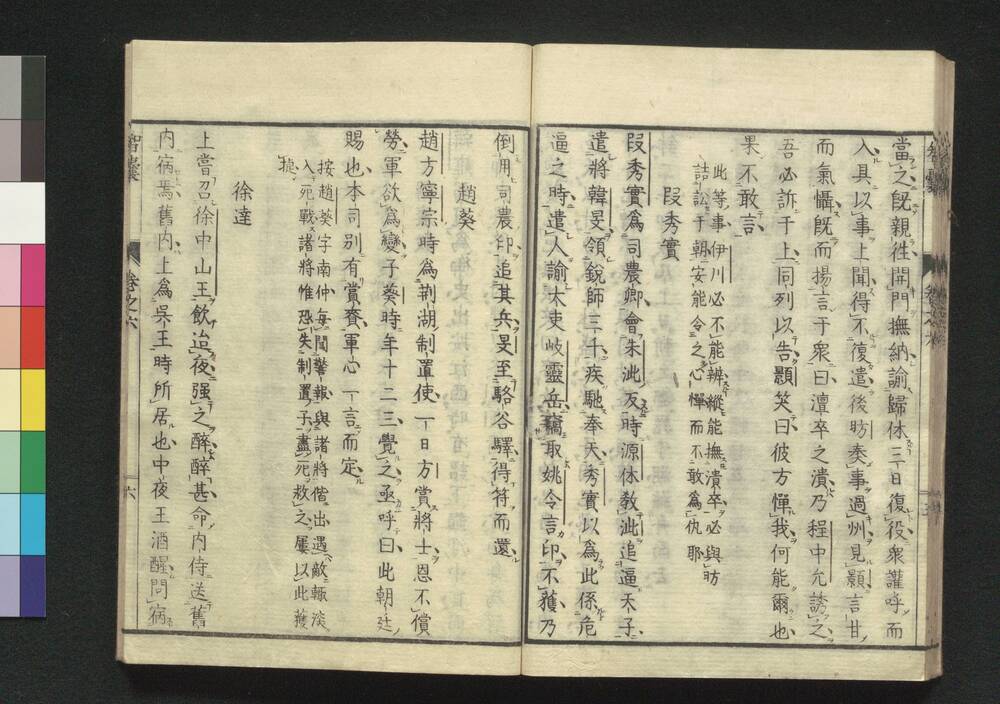 當之既親往開門撫納諭歸休三日復役衆讙呼而
入具以事上聞得不復遣後昉奏事過州見顥言甘
而氣懾既而揚言于衆曰澶卒之潰乃程中允誘之
吾必訴于上同列以告顥笑曰彼方憚我何能爾也
果不敢言
此等事伊川必不能辨縱能撫潰卒必與昉
詰訟于朝安能令之心憚而不敢為仇耶
段秀實
段秀實為司農卿會朱泚反時源休教泚追逼天子
遣將韓旻領銳師三千疾馳奉天秀實以為此係危
逼之時遣人諭大吏岐靈岳竊取姚令言印不獲乃
倒用司農印追其兵旻至駱谷驛得符而還
趙葵
趙方寧宗時為荆湖制置使一日方賞將士恩不償
勞軍欲為變子葵時年十二三覺之亟呼曰此朝廷
賜也本司別有賞賚軍心一言而定
按趙葵字南仲每聞警報與諸將偕出遇敵輒淡
入死戰諸將惟恐失制置子盡死救之屢以此獲
捷
徐達
上嘗召徐中山王飲迨夜强之醉醉甚命内侍送舊
内病焉舊内上為吳王時所居也中夜王酒醒問病
智囊
卷之六
六